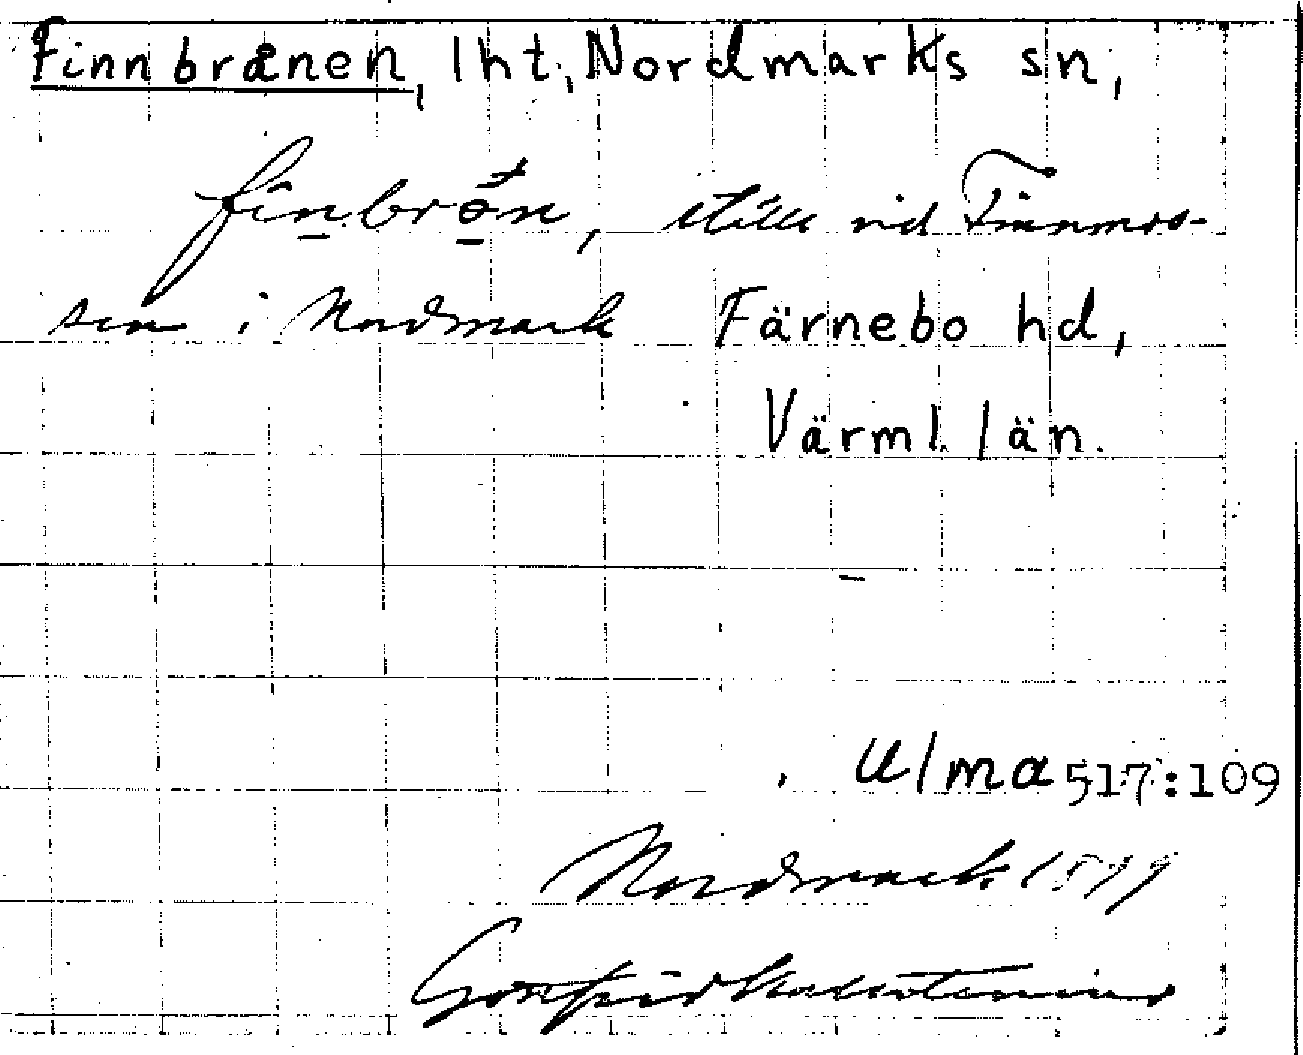 Finnbrånen, lht., Nordmarks sn,
finbrǫn, ställe vid Finnmos-
sen i Nordmark Färnebo hd,
Värml. län.
Ulma 517:109
Nordmark 1879
Gottfrid Kallstenius